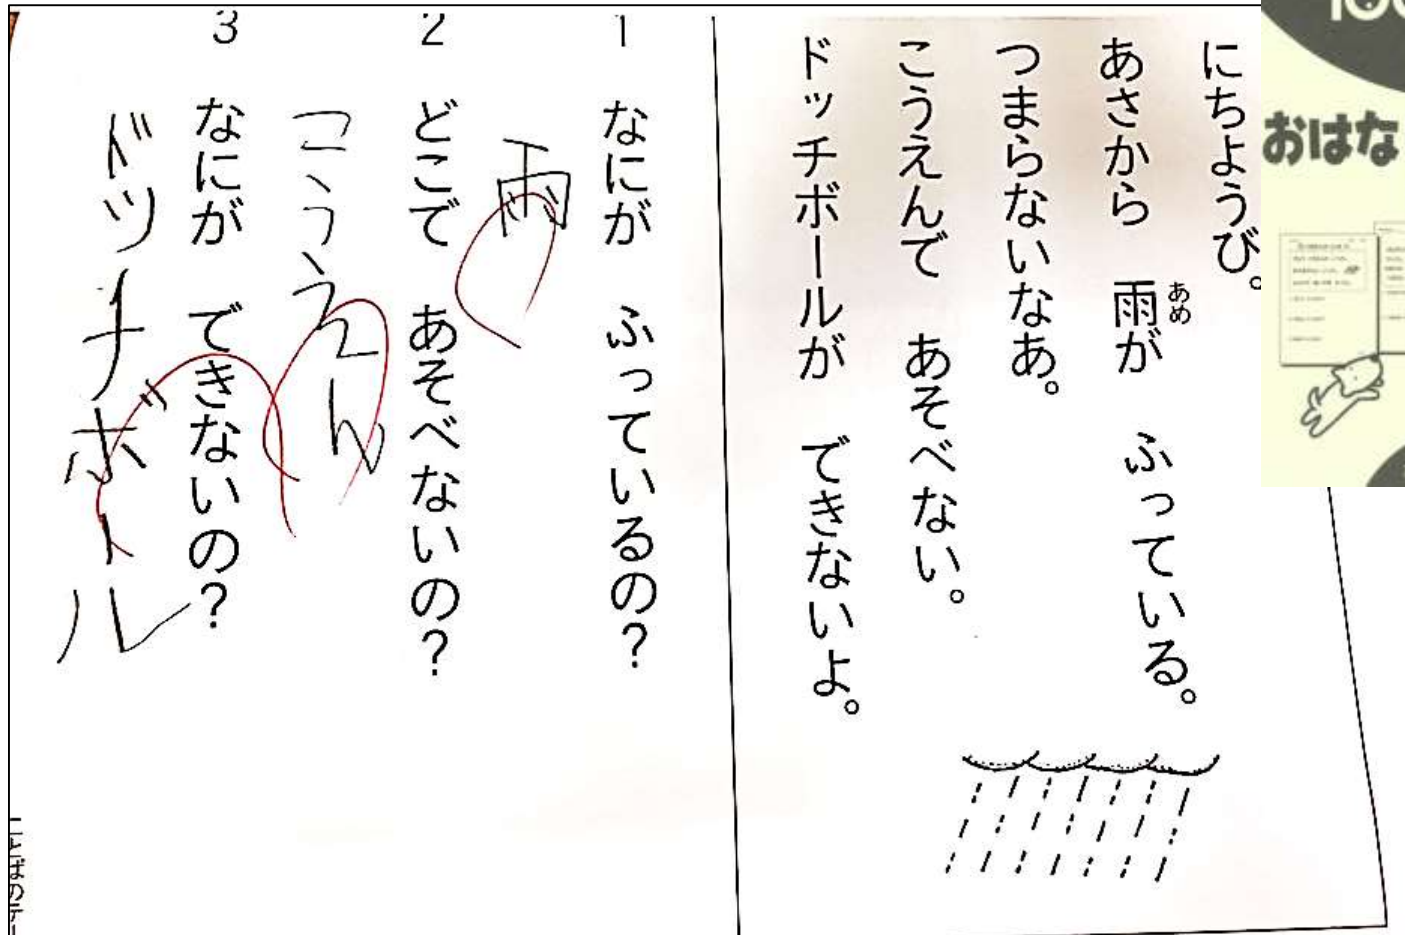 にちようび。
あさから　雨が　ふっている。
あめ
つまらないなあ。
こうえんで　あそべない。
ドッチボールが　できないよ。
1　なにが　ふっているの？
雨
2　どこで　あそべないの？
こうえん
3　なにが　できないの？
ドッチボール
おはな